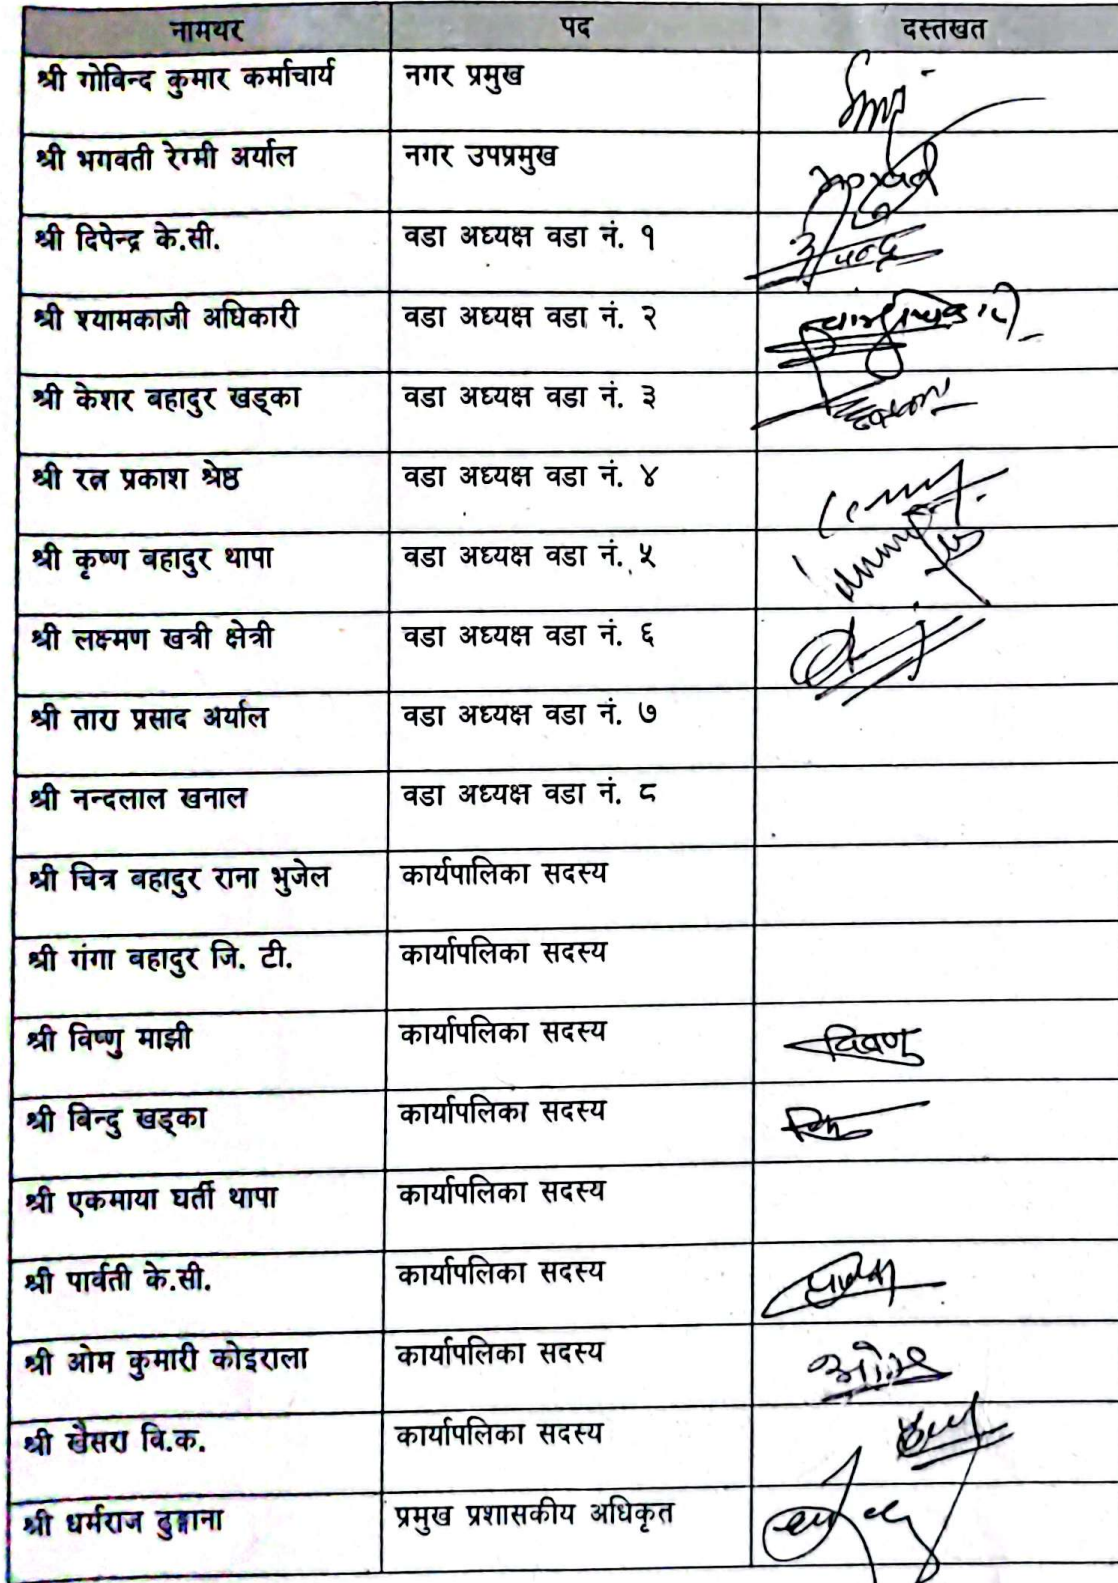 नामथर पद दस्तखत
श्री गोविन्द कुमार कर्माचार्य नगर प्रमुख
श्री भगवती रेग्मी अर्याल नगर उपप्रमुख
श्री दिपेन्द्र के.सी. वडा अध्यक्ष वडा नं. १
श्री श्यामकाजी अधिकारी वडा अध्यक्ष वडा नं. २
श्री केशर बहादुर खड्का वडा अध्यक्ष वडा नं. ३
श्री रत्न प्रकाश श्रेष्ठ वडा अध्यक्ष वडा नं. ४
श्री कृष्ण बहादुर थापा वडा अध्यक्ष वडा नं. ५
श्री लक्ष्मण खत्री क्षेत्री वडा अध्यक्ष वडा नं. ६
श्री तारा प्रसाद अर्याल वडा अध्यक्ष वडा नं. ७
श्री नन्दलाल खनाल वडा अध्यक्ष वडा नं. ८
श्री चित्र बहादुर राना भुजेल कार्यपालिका सदस्य
श्री गंगा बहादुर जि. टी. कार्यापलिका सदस्य
श्री विष्णु माझी कार्यापलिका सदस्य विष्णु
श्री बिन्दु खड्का कार्यापलिका सदस्य
श्री एकमाया घर्ती थापा कार्यापलिका सदस्य
श्री पार्वती के.सी. कार्यापलिका सदस्य
श्री ओम कुमारी कोइराला कार्यापलिका सदस्य
श्री खैसरा वि.क. कार्यापलिका सदस्य
श्री धर्मराज ढुङ्गाना प्रमुख प्रशासकीय अधिकृत